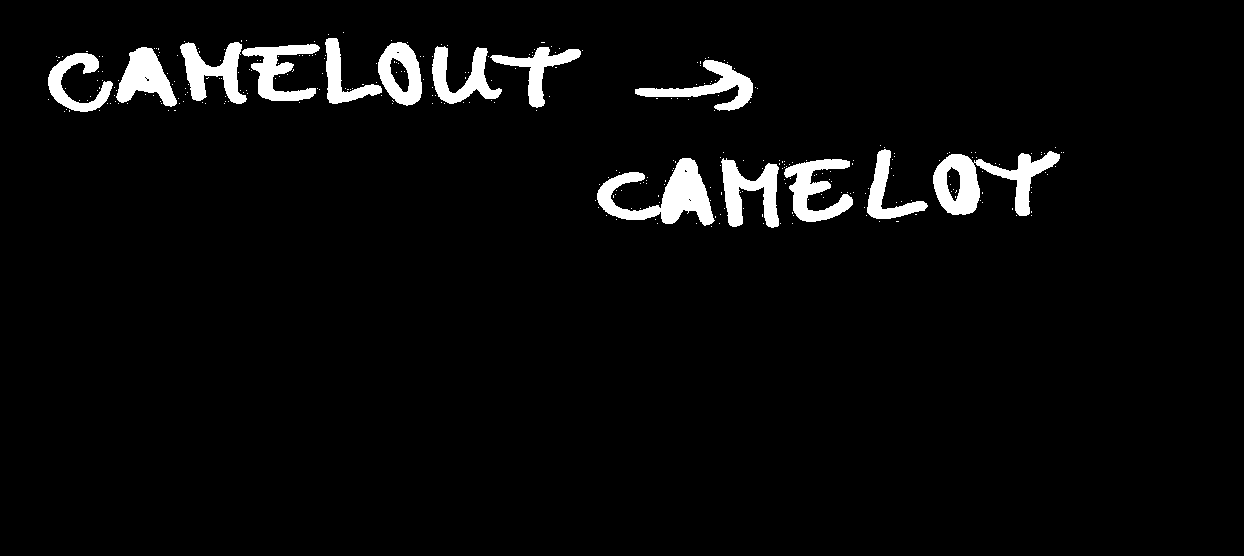 CAMELOUT →
CAMELOT